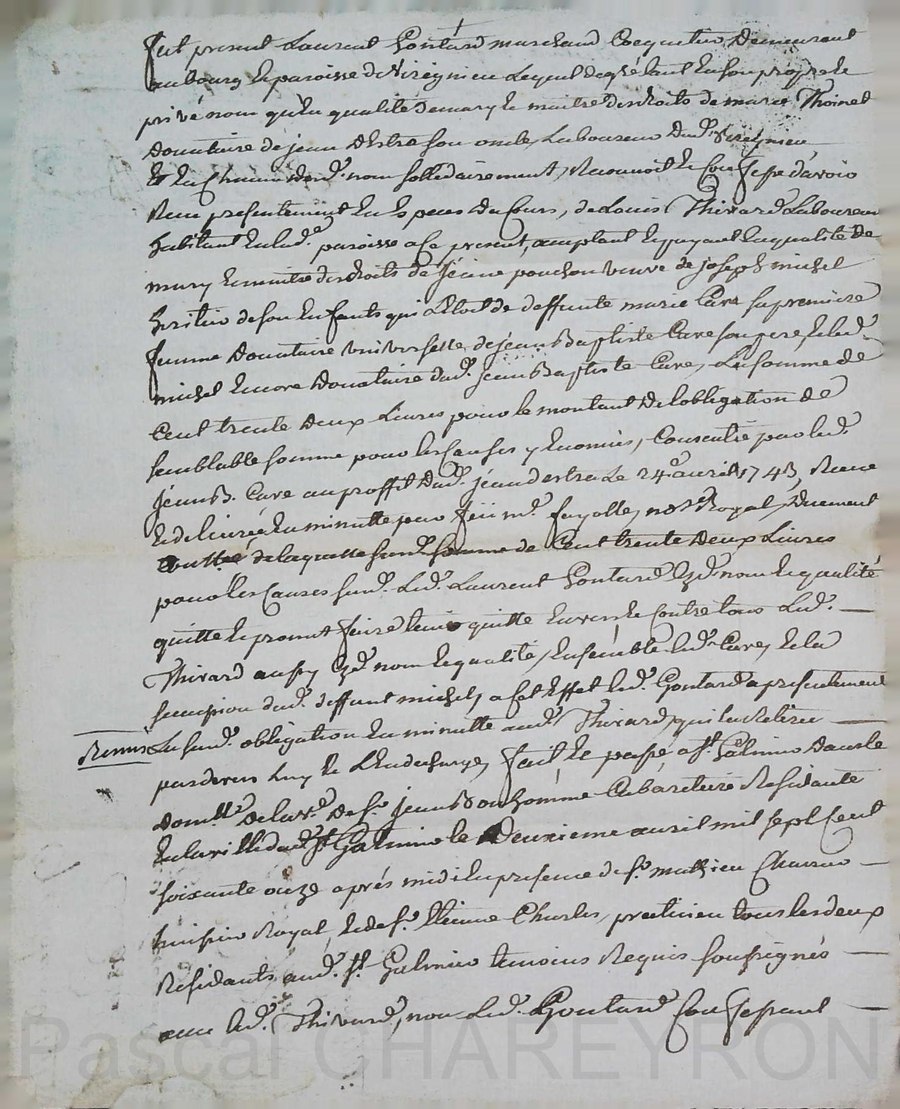 fut present Laurent Goutard marchand Cocquetier Demeurant
au bourg et paroisse de Viregnieu Lequel de gré tant En son propre et
privé nom qu'En qualité de mary et maitre des droits de marie Thoinet
Donataire de jean Destre son oncle, Laboureur dud.t Viregnieu
Et En Chacun desd.ts nom sollidairement, Reconnoit et Confesse d'avoir
Receu presentement En Especes du Cours, de Louis Thivard Laboureur
habitant En lad.e paroisse a ce present, acceptant et payant En qualité De
mary et maitre des droits de jeane pouchon veuve de joseph michel
heritier de son Enfants qui a Etoit de deffunte marie Cave sa premiere
femme Donataire universelle de jean Baptiste Cave son pere, Et led.t
michel Encore Donataire dud.t jean Baptiste Cave, La somme de
Cent trente Deux Livres pour le montant De lobligation de
semblable somme pour les Causes y Enoncés, Consentie par led.t
jean B. Cave au proffit dud.t jean destre Le 24.e avril 1743, Receue
et delivrée En minutte par feu m.e fayolle, not.e Royal, Duement
quittée de laquelle susd.te somme de Cent trente Deux Livres
pour les Causes susd.tes Led.t Laurent Goutard Esd.ts nom et qualité
quitte et promet faire tenir quitte Envers et Contre tous Led.t —
Thivard aussy Esd.ts nom et qualité, Ensemble led.t Cave, Et la
succession dud.t deffunt michel, a Cet Effet led.t Goutard a presentement
Remis La susd.te obligation En minutte aud.t Thivard, qui la Retirée —
par devers Luy Et L'En decharge, fait et passé a S.t Galmier Dans le
Domille De la v.e De S.r jean Bonhomme Cabaretiere Residante
En la ville dud.t S.t Galmier le Deuxieme avril mil sept Cent
soixante onze aprés midi En presence de S.r mathieu Charrier —
huissier Royal Et de S.r Etienne Charles, praticien tous les deux
Residants aud.t S.t Galmier temoins Requis soussignés —
avec led.t Thivard, non Led.t Goutard Confessant —
Pascal CHAREYRON